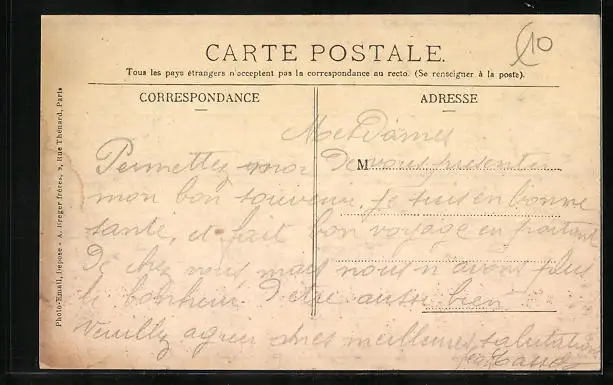 10
CARTE POSTALE.
Tous les pays étrangers n'acceptent pas la correspondance au recto. (Se renseigner à la poste).
CORRESPONDANCE
ADRESSE
Photo-Email, Déposé - A. Breger frères, 9, Rue Thénard, Paris
M
MesDames
Permettez moi De vous presenter
mon bon souvenir, je suis en bonne
santé, et fait bon voyage en partant
De chez vous mais nous n'avons plus
le bonheur D'etre aussi bien
Veuillez agréer mes meilleures salutations